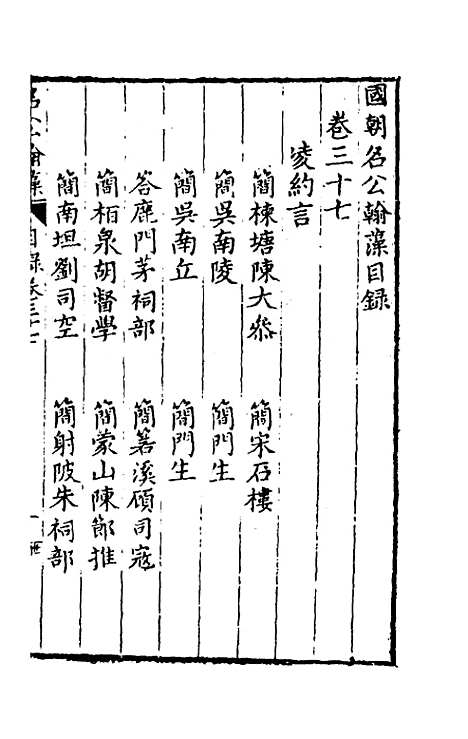 國朝名公翰藻目録
卷三十七
凌約言
簡棟塘陳大叅　簡宋石樓
簡吳南陵　簡門生
簡吳南立　簡門生
答鹿門茅祠部　簡箬溪顧司寇
簡栢泉胡督學　簡蒙山陳節推
簡南坦劉司空　簡射陂朱祠部
名公翰藻　目録卷三十七　一